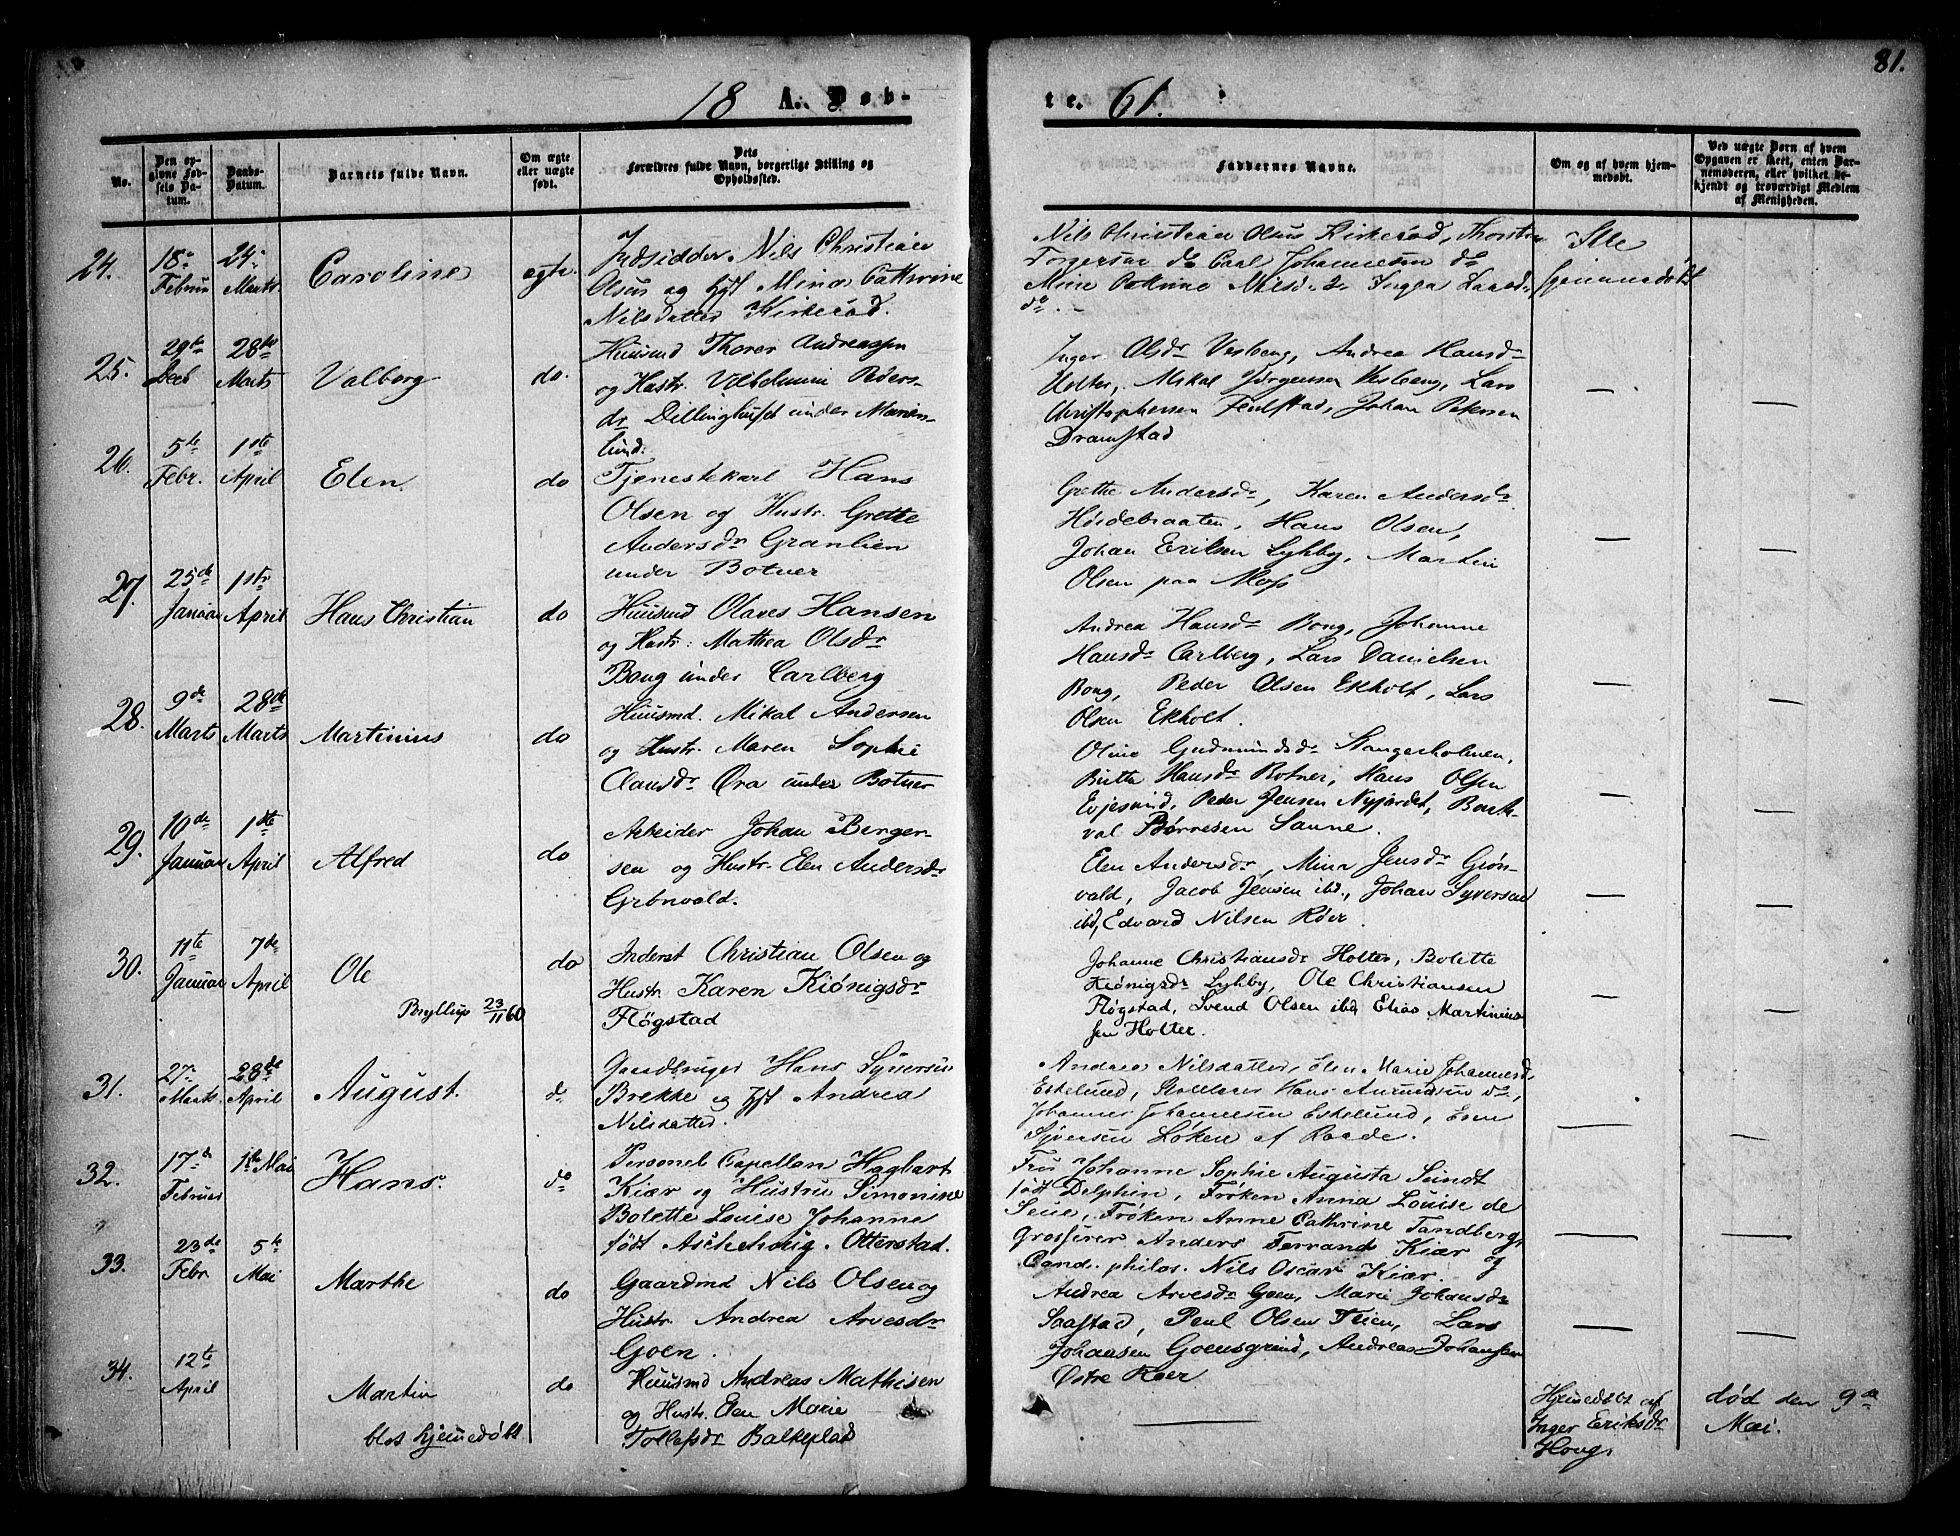 81.
18 A. Døb-
te. 61.
No.
Den opgivne Fødsels Datum.
Daabs-Datum.
Barnets fulde Navn.
Om ægte eller uægte født.
Dets Forældres fulde Navn, borgerlige Stilling og Opholdssted.
Faddernes Navne.
Om og af hvem hjemmedøbt.
Ved uægte Børn af hvem Opgaven er skeet, enten Barnemoderen, eller hvilket bekjendt og troværdigt Medlem af Menigheden.
24.
18de Februar
24de Marts
Caroline
egte.
Indsidder Nils Christian
Olsen og Hst Mina Cathrine
Nilsdatter Kirkerød.
Nils Christian Olsen Kirkerød, Thorsten
Torgersen do Carl Johannesen do
Mine Cathrine Nilsd. Inger Larsd.
do.
Ikke
hjemmedøbt
25.
29te Decb
28de Marts
Valborg
do.
Huusmd Thorer Andreassen
og Hustr. Vilhelmine Peders-
dr Dillinghuset under Marien-
lund.
Inger Olsdr Vesberg, Andrea Hansdr
Holter, Mikal Jørgensen Vesberg, Lars
Christophersen Feulstad, Johan Petersen
Dramstad
—
—
26.
5te Febr.
1ste April
Elen.
do
Tjenestekarl Hans
Olsen og Hustr. Grethe
Andersdr Granlien
under Botner
Grethe Andersdr, Karen Andersdr
Hørdebraaten, Hans Olsen,
Johan Eriksen Lyhby, Martin
Olsen paa Moss
—
—
27.
25de Januar
1ste April
Hans Christian
do
Huusmd Olaves Hansen
og Hustr: Mathea Olsdr
Bong under Carlberg
Andrea Hansdr Bong, Johanne
Hansdr Carlberg, Lars Danielsen
Bong, Peder Olsen Ekholt, Lars
Olsen Ekholt.
—
—
28.
9de Marts
28de Marts
Martinius
do
Huusmd. Mikal Andersen
og Hustr. Maren Sophie
Clausdr Øra under Botner
Oline Gudmundsdr Stangesholmen,
Britta Hansdr Botner, Hans Olsen
Evjesund, Peder Jensen Nyjordet, Bart-
val Børresen Saune.
—
—
29.
10de Januar
1ste April
Alfred
do
Arbeider Johan Berger-
sen og Hustr. Elen Andersdr
Grønvald.
Elen Andersdr, Mina Jensdr Grøn-
vald, Jacob Jensen ibd., Johan Syversen
ibd, Edvard Nilsen Røer.
—
—
30.
11te Januar
7de April
Ole
Bryllup 23/11 60
do
Inderst Christian Olsen og
Hustr. Karen Kiønigsdr
Fløgstad
Johanne Christiansdr Holter, Bolette
Kiønigsdr Lyhby, Ole Christiansen
Fløgstad, Svend Olsen ibd, Elias Martinius-
sen Holter.
—
—
31.
27de Marts.
28de April
August.
do
Gaardbruger Hans Syversen
Brekke og Hst Andrea
Nilsdatter.
Andrea Nilsdatter, Elen Marie Johannesd.
Eskelund, Hans do,
Johannes Johannesen Eskelund, Even
Syversen Løken af Raade.
—
—
32.
17de Februar
1ste Mai
Hans.
do
Personel Capellan Hagbart
Kiær og Hustru Simonine
Bolette Louise Johanne
født Aschehoug. Otterstad.
Fru Johanne Sophie Augusta Sundt
født Delphin, Frøken Anna Louise de
Seue, Frøken Anne Cathrine Tandberg,
Grosserer Anders Ferrand Kiær og
Cand. philos. Nils Oscar Kiær.
—
—
33.
23de Febr
5te Mai
Marthe
do
Gaardmd Nils Olsen og
Hustr. Andrea Arvesdr
Goen.
Andrea Arvesdr Goen, Marie Johansdr
Saastad, Poul Olsen Feien, Lars
Johansen Goensgrind, Andreas Johansen
Østre Røer
—
—
34.
12te April
Martin
blot hjemedøbt
do
Huusmd Andreas Mathisen
og Hustr. Elen Marie
Tollefsdr Balkeplad
—
Hjemedøbt af
Inger Eriksdr
Houg,
død den 9de
Mai.